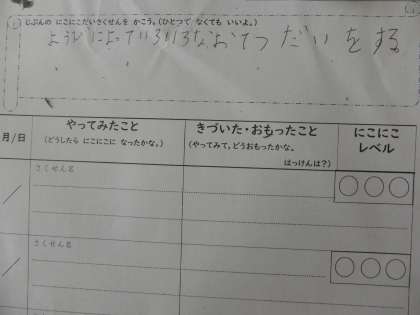 じぶんの にこにこだいさくせんを かこう。(ひとつで なくても いいよ。)
ようびによっていろいろなおてつだいをする
月/日
やってみたこと
(どうしたら にこにこに なったかな。)
きづいた・おもったこと
(やってみて、どうおもったかな。
はっけんは?)
にこにこ
レベル
/
さくせん名
/
さくせん名